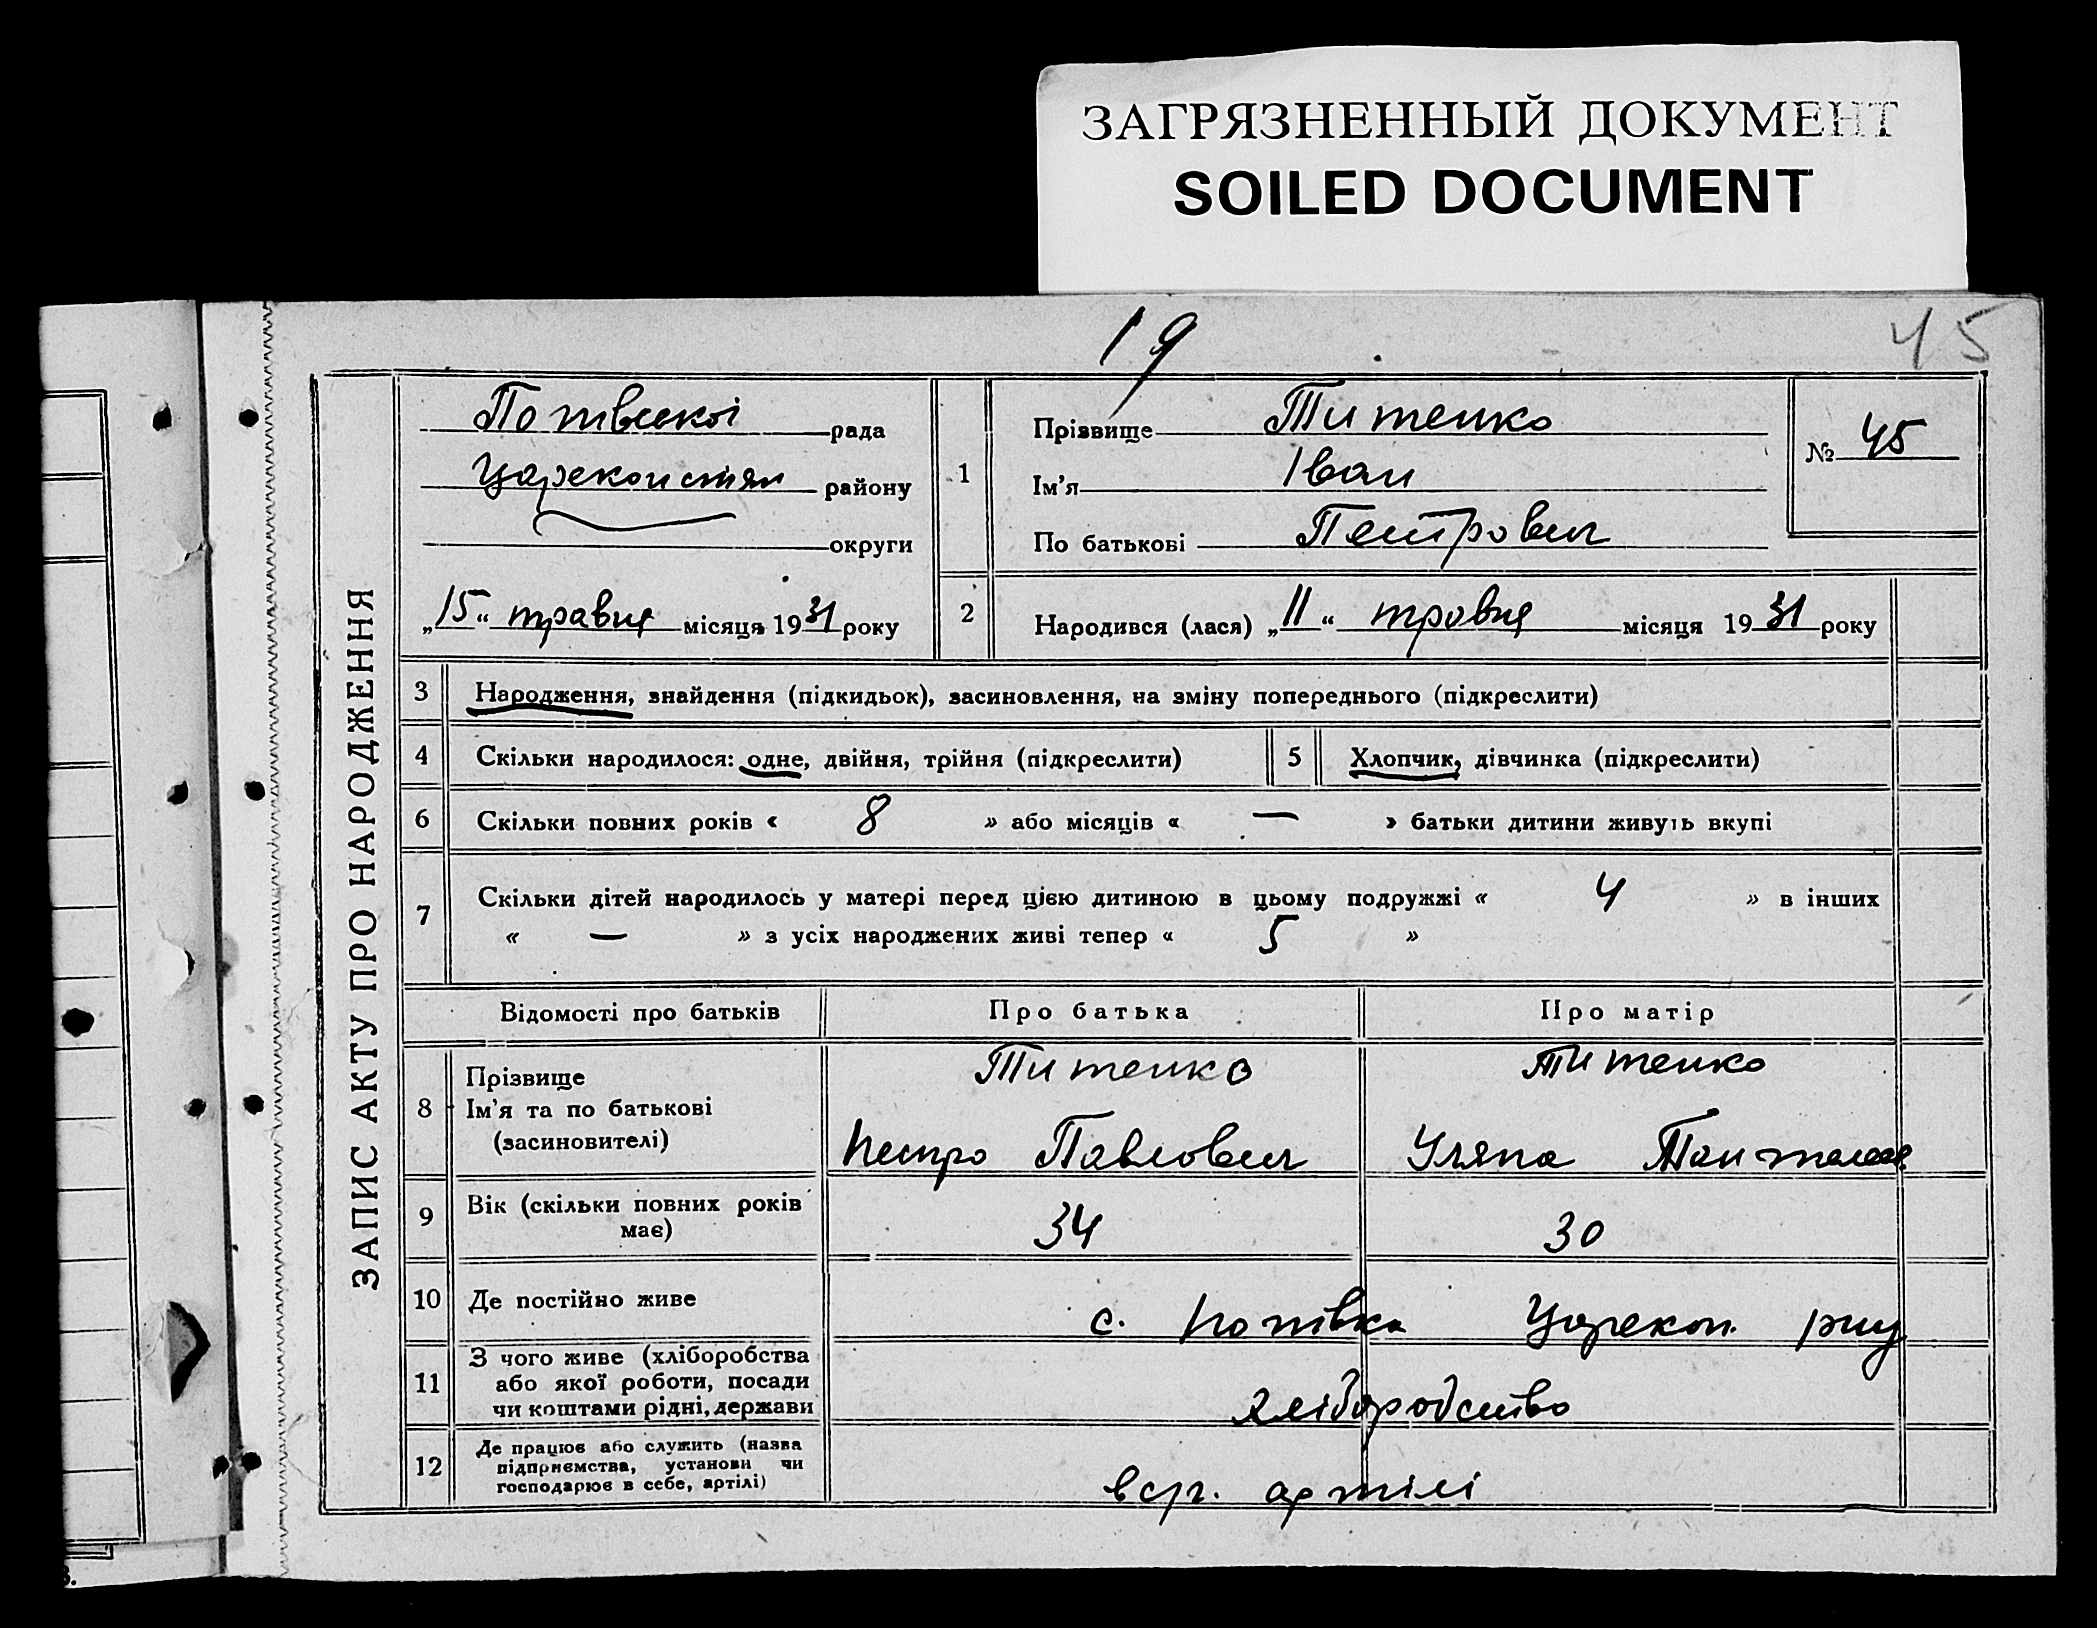 ЗАГРЯЗНЕННЫЙ ДОКУМЕНТ
SOILED DOCUMENT
19
45
ЗАПИС АКТУ ПРО НАРОДЖЕННЯ
Потівської рада
Цареконстян району
округи
„15“ травня місяця 1931 року
1
Прізвище Титенко
Ім'я Іван
По батькові Петрович
№ 45
2
Народився (лася) „11“ травня місяця 1931 року
3 Народження, знайдення (підкидьок), засиновлення, на зміну попереднього (підкреслити)
4 Скільки народилося: одне, двійня, трійня (підкреслити)
5 Хлопчик, дівчинка (підкреслити)
6 Скільки повних років « 8 » або місяців « — » батьки дитини живуть вкупі
7 Скільки дітей народилось у матері перед цією дитиною в цьому подружжі « 4 » в інших
« — » з усіх народжених живі тепер « 5 »
Відомості про батьків Про батька Про матір
8 Прізвище
Ім'я та по батькові
(засиновителі)
Титенко
Петро Павлович
Титенко
Уляна
9 Вік (скільки повних років
має)
34 30
10 Де постійно живе с. Потівка Царекон. р-ну
11 З чого живе (хліборобства
або якої роботи, посади
чи коштами рідні, держави
хліборобство
12 Де працює або служить (назва
підприємства, установи чи
господарює в себе, артілі)
в с/г. артілі